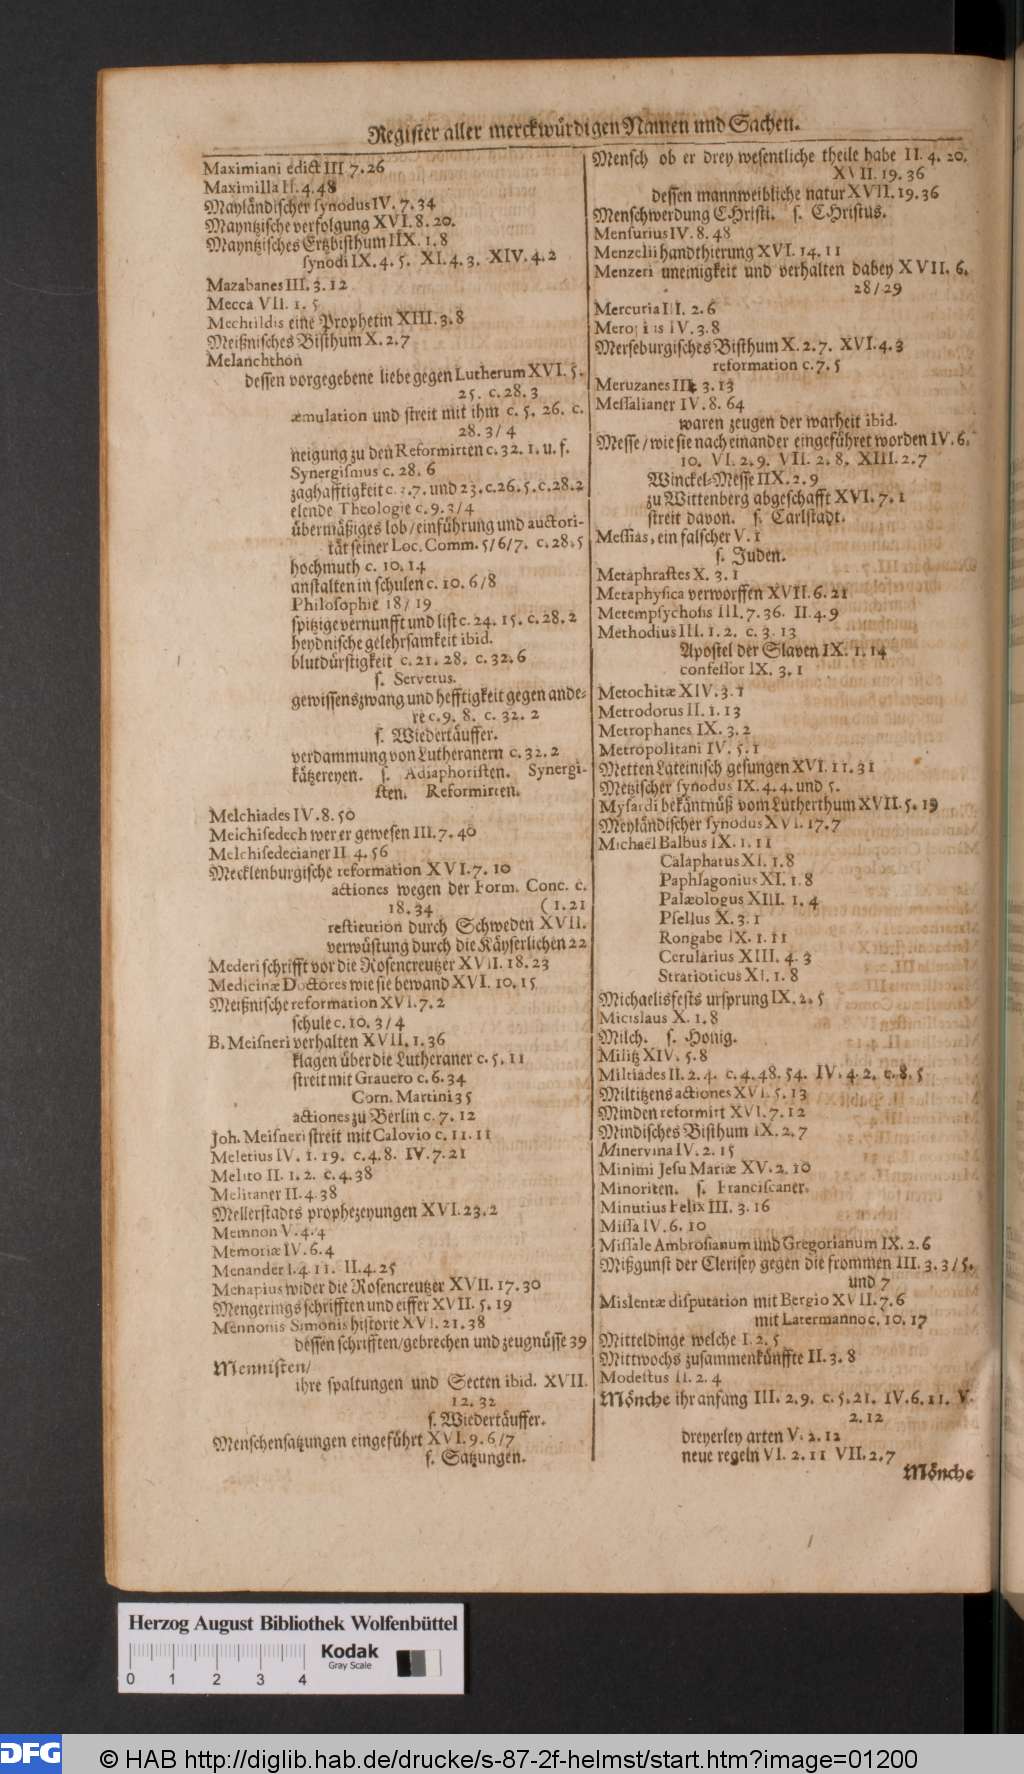 Register aller merckwürdigen Namen und Sachen.
Maximiani edict III. 7. 26
Maximilla II. 4. 48
Mayländischer synodus IV. 7. 34
Mayntzische verfolgung XVI. 8. 20.
Mayntzisches Ertzbisthum IIX. 1. 8
synodi IX. 4. 5. XI. 4. 3. XIV. 4. 2
Mazabanes III. 3. 12
Mecca VII. 1. 5
Mechtildis eine Prophetin XIII. 3. 8
Meißnisches Bisthum X. 2. 7
Melanchthon
dessen vorgegebene liebe gegen Lutherum XVI. 5.
25. c. 28. 3
æmulation und streit mit ihm c. 5. 26. c.
28. 3/4
neigung zu den Reformirten c. 32. 1. u. f.
Synergismus c. 28. 6
zaghafftigkeit c. 7. und 23. c. 26. 5. c. 28. 2
elende Theologie c. 9. 3/4
übermäßiges lob/einführung und auctori-
tät seiner Loc. Comm. 5/6/7. c. 28. 5
hochmuth c. 10. 14
anstalten in schulen c. 10. 6/8
Philosophie 18/19
spitzige vernunfft und list c. 24. 15. c. 28. 2
heydnische gelehrsamkeit ibid.
blutdürstigkeit c. 21. 28. c. 32. 6
s. Servetus.
gewissenszwang und hefftigkeit gegen ande-
re c. 9. 8. c. 32. 2
s. Wiedertäuffer.
verdammung von Lutheranern c. 32. 2
kätzereyen. s. Adiaphoristen. Synergi-
sten. Reformirten.
Melchiades IV. 8. 50
Melchisedech wer er gewesen III. 7. 40
Melchisedecianer II. 4. 56
Mecklenburgische reformation XVI. 7. 10
actiones wegen der Form. Conc. c.
18. 34 (1. 21
restitution durch Schweden XVII.
verwüstung durch die Käyserlichen 22
Mederi schrifft vor die Rosencreutzer XVII. 18. 23
Medicinæ Doctores wie sie bewand XVI. 10. 15
Meißnische reformation XVI. 7. 2
schule c. 10. 3/4
B. Meisneri verhalten XVII. 1. 36
klagen über die Lutheraner c. 5. 11
streit mit Grauero c. 6. 34
Corn. Martini 35
actiones zu Berlin c. 7. 12
Joh. Meisneri streit mit Calovio c. 11. 11
Meletius IV. 1. 19. c. 4. 8. IV. 7. 21
Melito II. 1. 2. c. 4. 38
Melitaner II. 4. 38
Mellerstadts prophezeyungen XVI. 23. 2
Memnon V. 4. 4
Memoriæ IV. 6. 4
Menander I. 4. 11. II. 4. 25
Menapius wider die Rosencreutzer XVII. 17. 30
Mengerings schrifften und eiffer XVII. 5. 19
Mennonis Simonis historie XVI. 21. 38
dessen schrifften/gebrechen und zeugnüsse 39
Mennisten/
ihre spaltungen und Secten ibid. XVII.
12. 32
s. Wiedertäuffer.
Menschensatzungen eingeführt XVI. 9. 6/7
s. Satzungen.
Mensch ob er drey wesentliche theile habe II. 4. 20.
XVII. 19. 36
dessen mannweibliche natur XVII. 19. 36
Menschwerdung CHristi. s. CHristus.
Mensurius IV. 8. 48
Menzelii handthierung XVI. 14. 11
Menzeri uneinigkeit und verhalten dabey XVII. 6.
28/29
Mercuria III. 2. 6
IV. 3. 8
Merseburgisches Bisthum X. 2. 7. XVI. 4. 3
reformation c. 7. 5
Meruzanes III. 3. 13
Messalianer IV. 8. 64
waren zeugen der warheit ibid.
Messe/wie sie nach einander eingeführet worden IV. 6.
10. VI. 2. 9. VII. 2. 8. XIII. 2. 7
Winckel-Messe IIX. 2. 9
zu Wittenberg abgeschafft XVI. 7. 1
streit davon. s. Carlstadt.
Messias, ein falscher V. 1
s. Juden.
Metaphrastes X. 3. 1
Metaphysica verworffen XVII. 6. 21
Metempsychosis III. 7. 36. II. 4. 9
Methodius III. 1. 2. c. 3. 13
Apostel der Slaven IX. 1. 14
confessor IX. 3. 1
Metochitæ XIV. 3. 1
Metrodorus II. 1. 13
Metrophanes IX. 3. 2
Metropolitani IV. 5. 1
Metten Lateinisch gesungen XVI. 11. 31
Metzischer synodus IX. 4. 4. und 5.
Mysardi bekäntnüß vom Lutherthum XVII. 5. 19
Meyländischer synodus XVI. 17. 7
Michaël Balbus IX. 1. 11
Calaphatus XI. 1. 8
Paphlagonius XI. 1. 8
Palæologus XIII. 1. 4
Psellus X. 3. 1
Rongabe IX. 1. 11
Cerularius XIII. 4. 3
Stratioticus XI. 1. 8
Michaelisfests ursprung IX. 2. 5
Micislaus X. 1. 8
Milch. s. Honig.
Militz XIV. 5. 8
Miltiades II. 2. 4. c. 4. 48. 54. IV. 4. 2. c. 8. 5
Miltitzens actiones XVI. 5. 13
Minden reformirt XVI. 7. 12
Mindisches Bisthum IX. 2. 7
Minervina IV. 2. 15
Minimi Jesu Mariæ XV. 2. 10
Minoriten. s. Franciscaner.
Minutius Felix III. 3. 16
Missa IV. 6. 10
Missale Ambrosianum und Gregorianum IX. 2. 6
Mißgunst der Clerisey gegen die frommen III. 3. 3/5.
und 7
Mislentæ disputation mit Bergio XVII. 7. 6
mit Latermanno c. 10. 17
Mitteldinge welche I. 2. 5
Mittwochs zusammenkünffte II. 3. 8
Modestus II. 2. 4
Mönche ihr anfang III. 2. 9. c. 5. 21. IV. 6. 11. V.
2. 12
dreyerley arten V. 2. 12
neue regeln VI. 2. 11 VII. 2. 7
Mönche
Herzog August Bibliothek Wolfenbüttel
Kodak
Gray Scale
0 1 2 3 4
DFG © HAB http://diglib.hab.de/drucke/s-87-2f-helmst/start.htm?image=01200